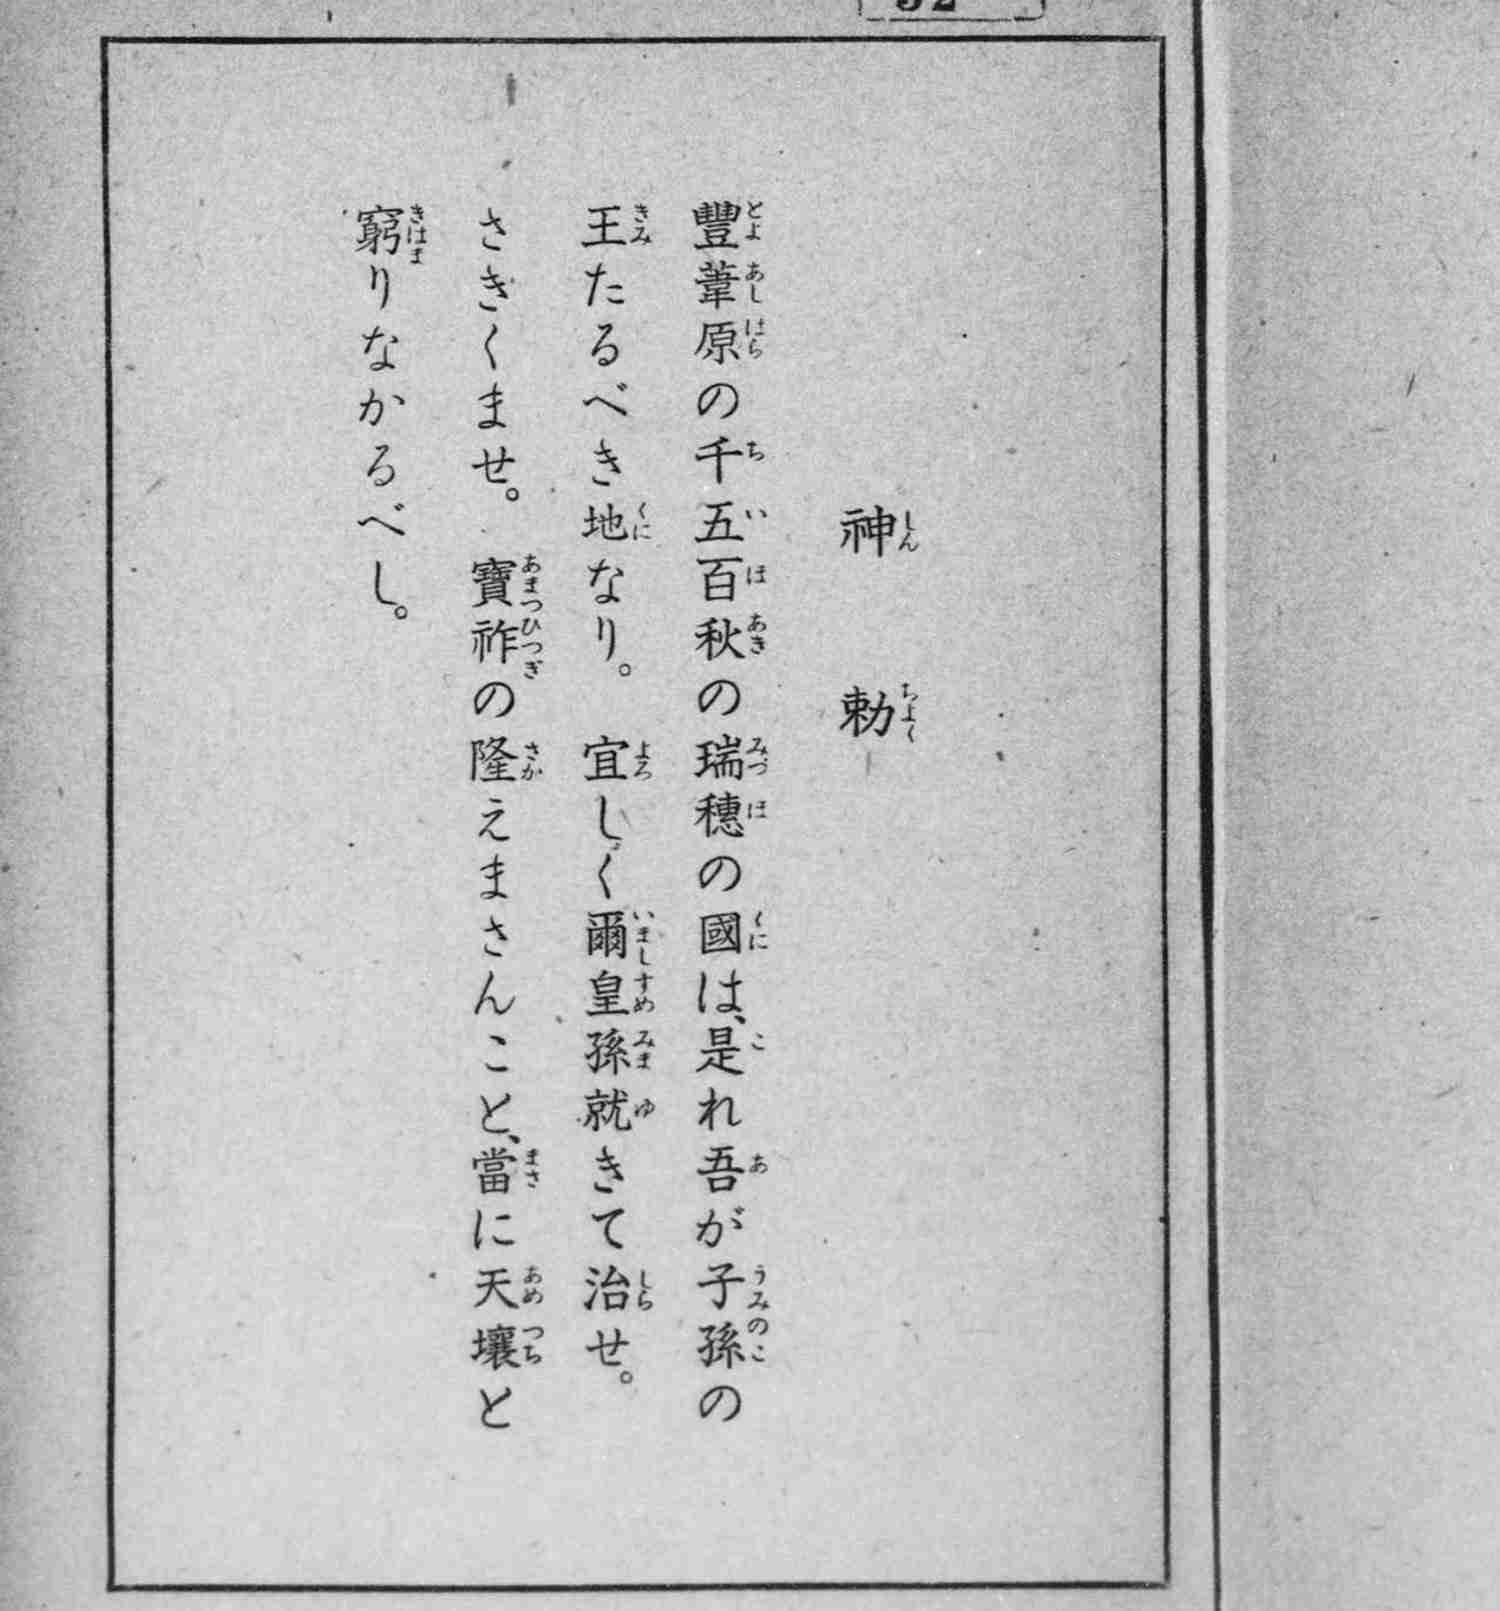 神勅
豐葦原の千五百秋の瑞穗の國は、是れ吾が子孫の
王たるべき地なり。宜しく爾皇孫就きて治せ。
さきくませ。寶祚の隆えまさんこと、當に天壤と
窮りなかるべし。